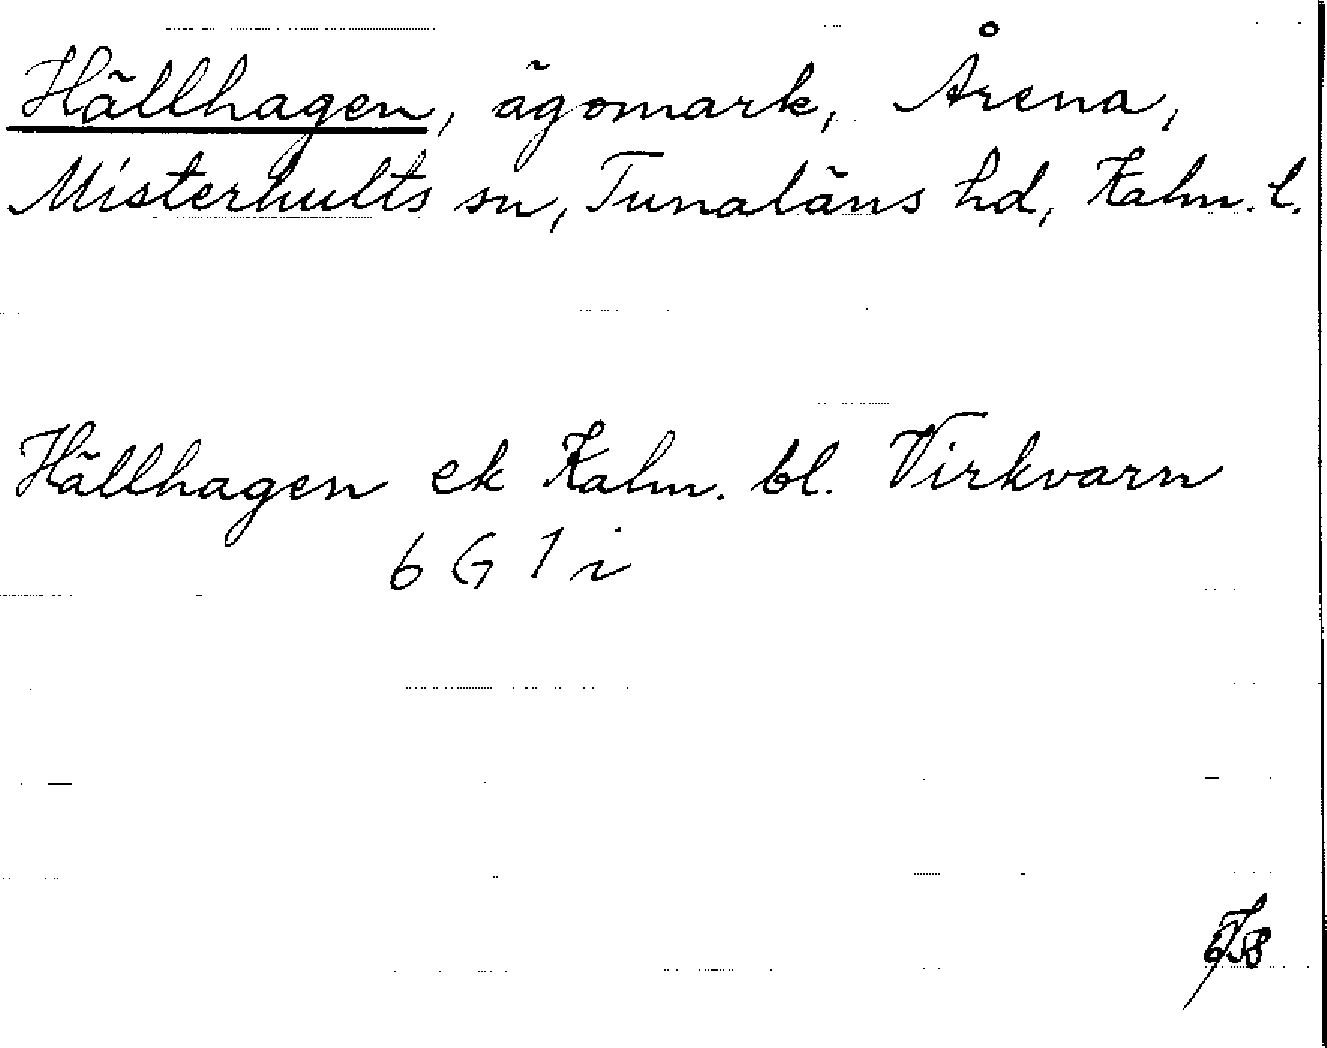 Hällhagen, ägomark, Årena,
Misterhults sn, Tunaläns hd, Kalm. l.
Hällhagen ek Kalm. bl. Virkvarn
6 G 1 i